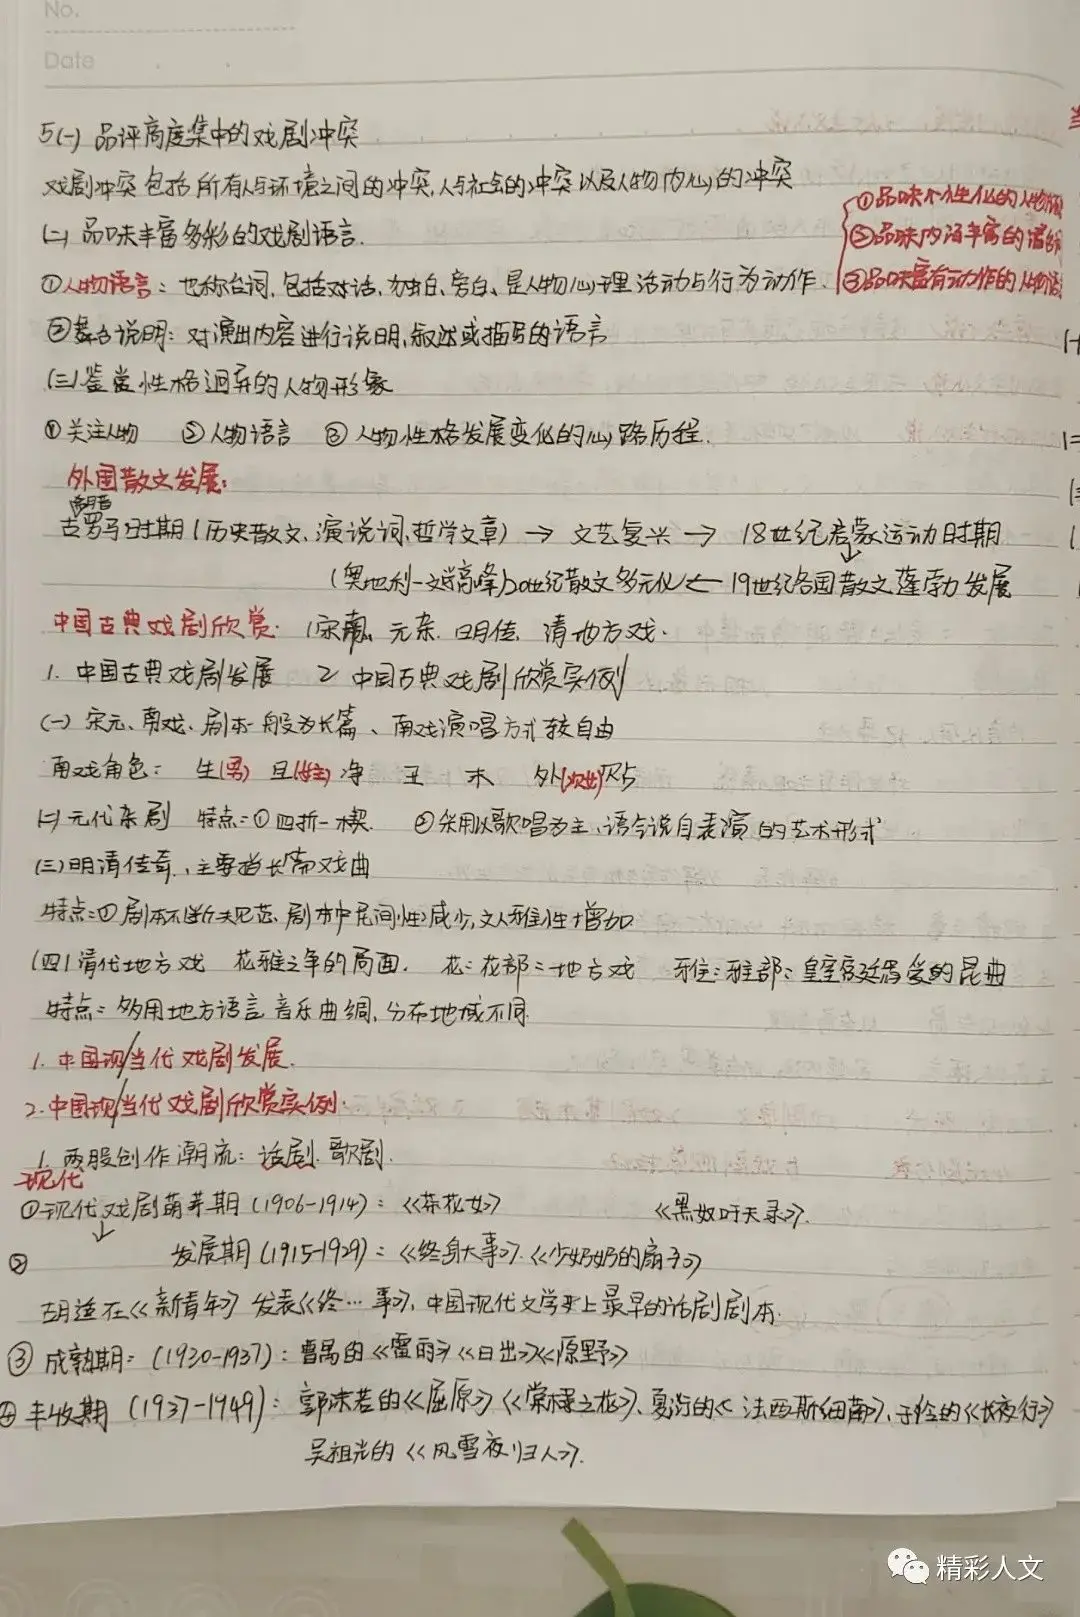 No.
Date
5(一) 品评高度集中的戏剧冲突
戏剧冲突包括所有人与环境之间的冲突,人与社会的冲突以及人物内心的冲突
(二) 品味丰富多彩的戏剧语言.
①品味个性化的人物
②品味内涵丰富的
③品味富有动作的人物
①人物语言：也称台词,包括对话、独白、旁白、是人物心理活动与行为动作.
②舞台说明：对演出内容进行说明,叙述或描写的语言
(三)鉴赏性格迥异的人物形象
①关注人物 ②人物语言 ③人物性格发展变化的心路历程.
外国散文发展:
古罗马时期(历史散文、演说词,哲学文章) → 文艺复兴 → 18世纪启蒙运动时期
(奥地利-文学高峰)20世纪散文多元化 ← 19世纪各国散文蓬勃发展
中国古典戏剧欣赏: 元杂. 明传. 清地方戏.
1. 中国古典戏剧发展 2 中国古典戏剧欣赏实例
(一) 宋元、南戏、剧本一般为长篇、南戏演唱方式较自由
南戏角色： 生(男) 旦(女主) 净 丑 末 外 贴
(二)元代杂剧 特点：①四折一楔. ②采用以歌唱为主、的艺术形式
(三)明清传奇、主要指长篇戏曲
特点：①剧本不断规范、剧本中民间性减少,文人雅性增加
(四)清代地方戏 花雅之争的局面. 花：花部：地方戏 雅：雅部：皇室宫廷喜爱的昆曲
特点：多用地方语言,音乐曲调,分布地域不同.
1. 中国现/当代戏剧发展.
2. 中国现/当代戏剧欣赏实例.
1. 两股创作潮流：话剧. 歌剧.
现代
①现代戏剧萌芽期(1906-1914)：《茶花女》 《黑奴吁天录》.
↓
② 发展期(1915-1929)：《终身大事》.《少奶奶的扇子》
胡适在《新青年》发表《终…事》, 中国现代文学史上最早的话剧剧本.
③ 成熟期：(1930-1937)：曹禺的《雷雨》《日出》《原野》
④丰收期 (1937-1949)：郭沫若的《屈原》《棠棣之花》、夏衍的《法西斯细菌》、于伶的《长夜行》
吴祖光的《风雪夜归人》.
精彩人文